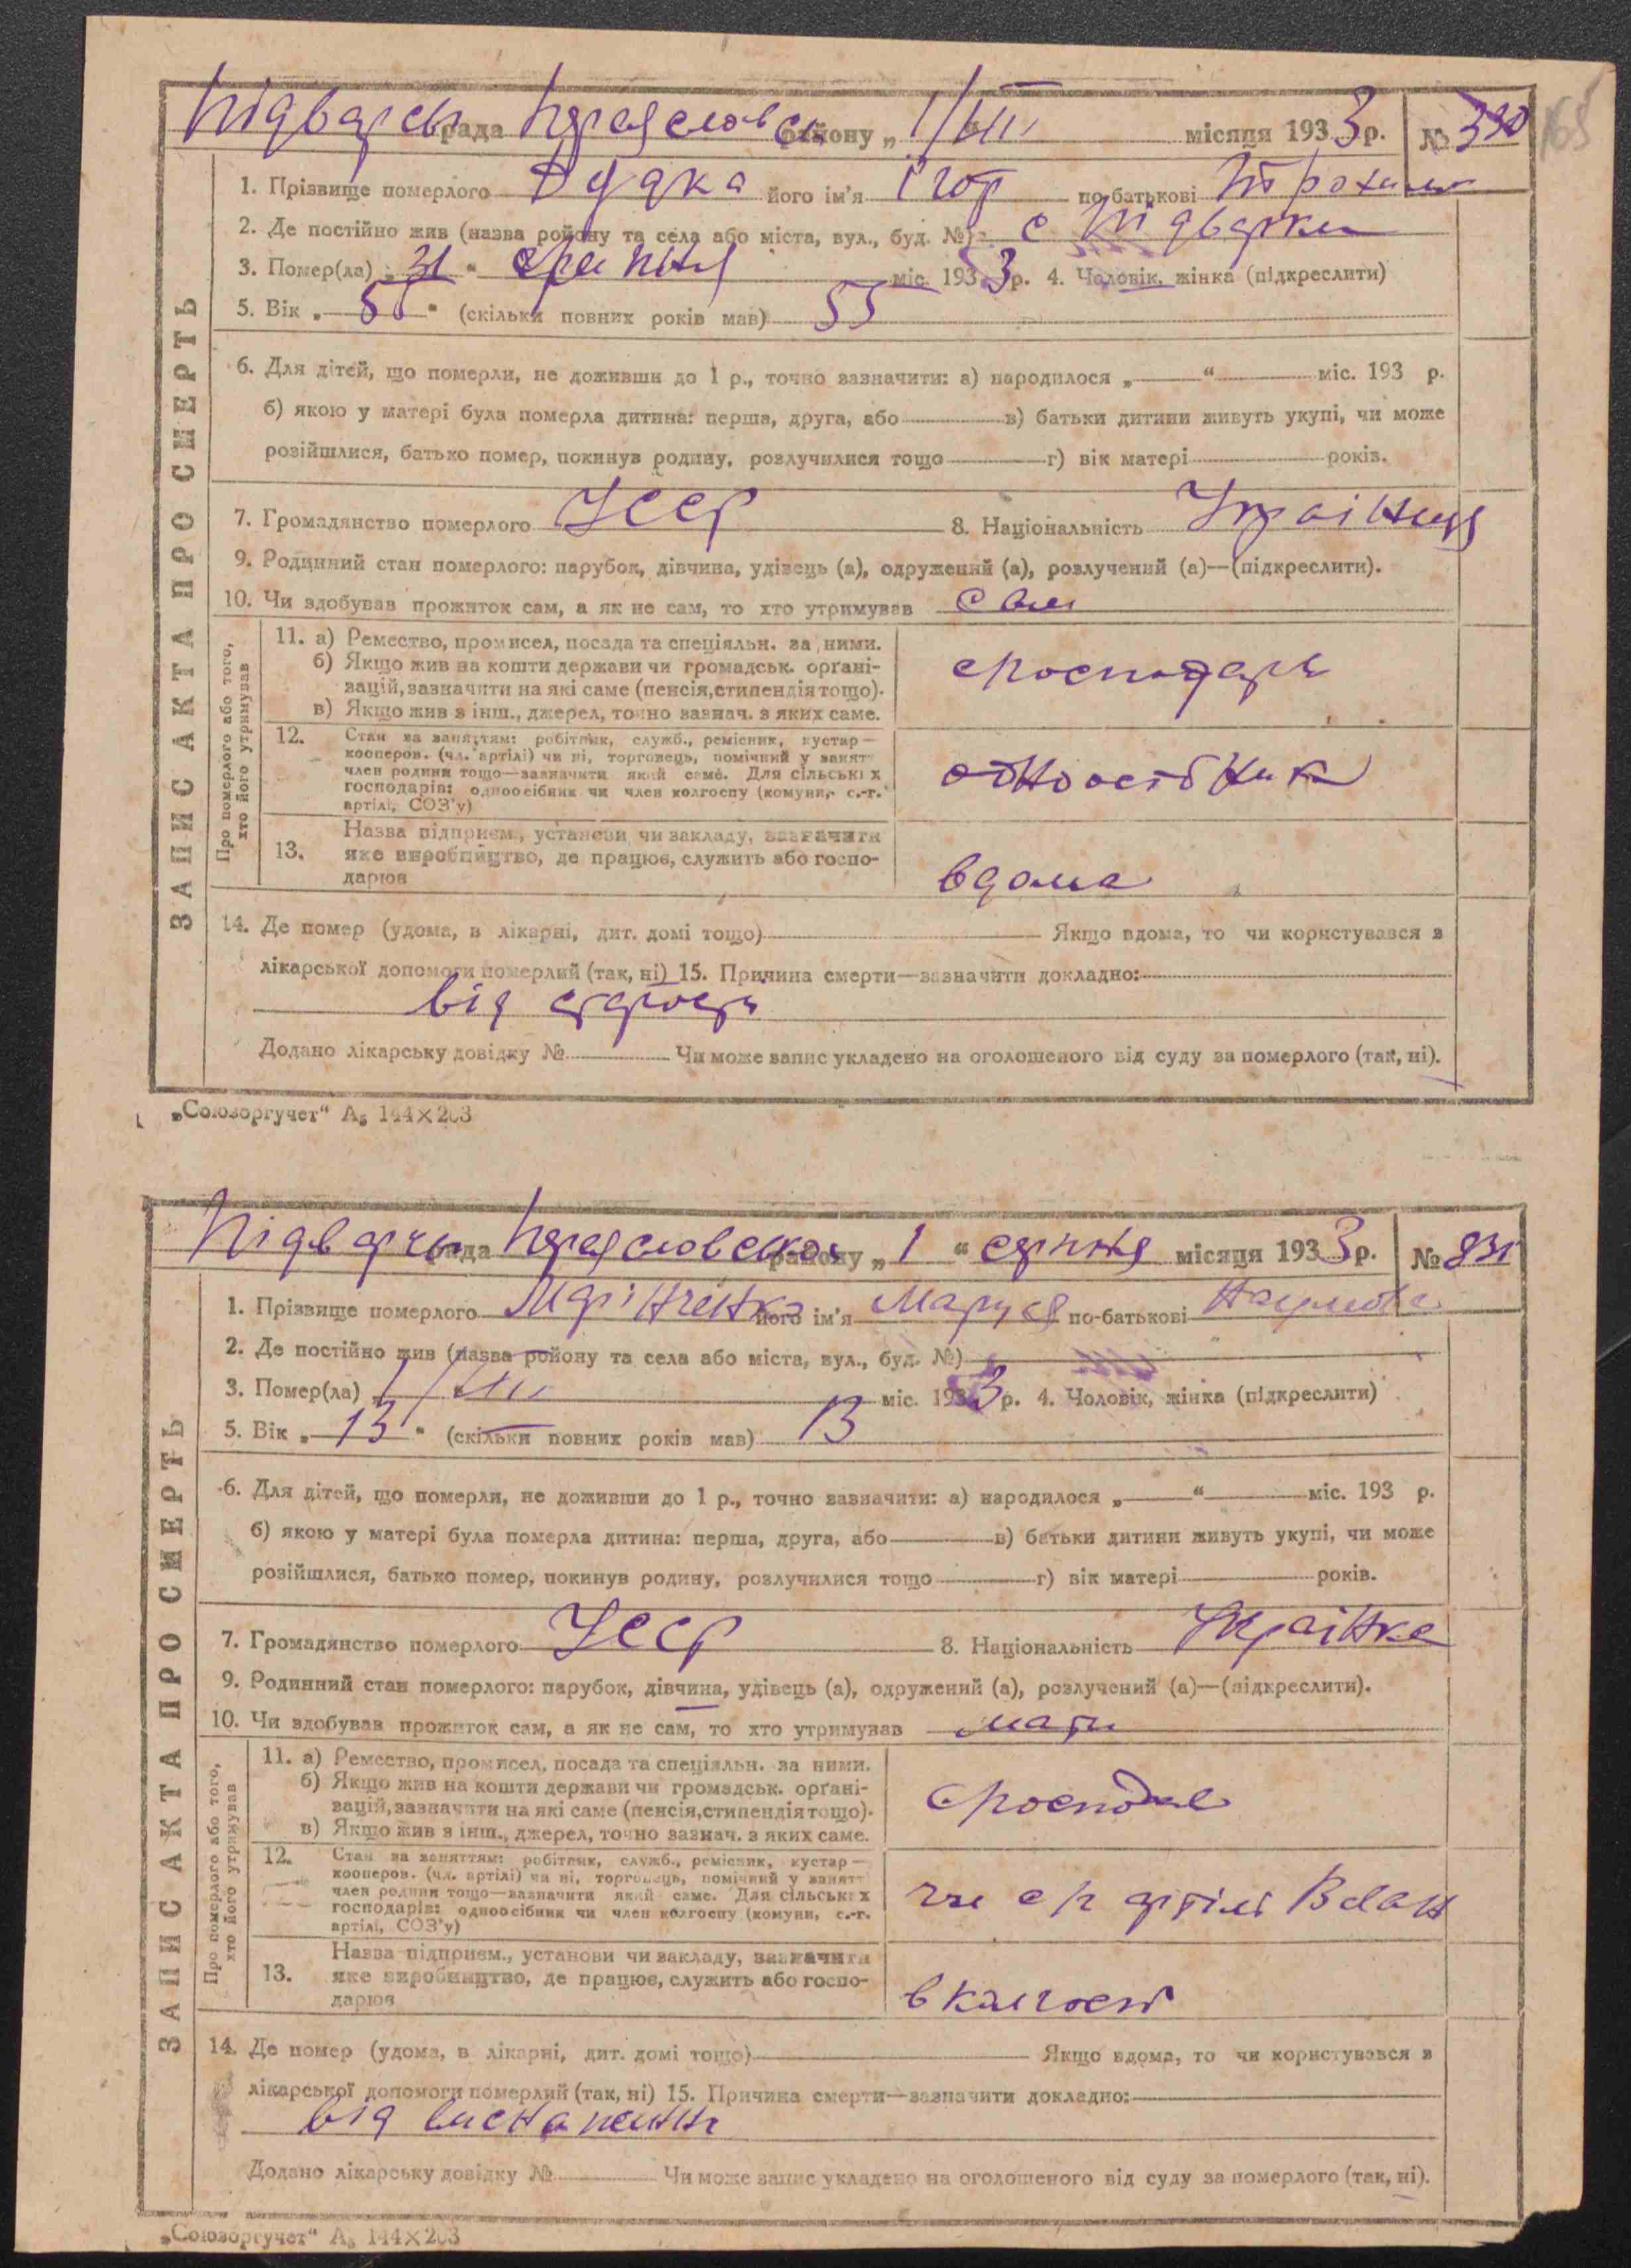 Підварськ рада Переяславськ району „ 1/VIII місяця 1933 р. № 330
168
1. Прізвище померлого Дудка його ім'я Ігор по батькові Трохим
2. Де постійно жив (назва району та села або міста, вул., буд. №) с Підварки
3. Помер(ла) „ 31 “ липня міс. 1933 р. 4. Чоловік, жінка (підкреслити)
5. Вік „ 55 “ (скільки повних років мав) 55
6. Для дітей, що померли, не доживши до 1 р., точно зазначити: а) народилося „ “ міс. 193 р.
б) якою у матері була померла дитина: перша, друга, або в) батьки дитини живуть укупі, чи може
розійшлися, батько помер, покинув родину, розлучилися тощо г) вік матері років.
7. Громадянство померлого УССР 8. Національність Українец
9. Родинний стан померлого: парубок, дівчина, удівець (а), одружений (а), розлучений (а)—(підкреслити).
10. Чи здобував прожиток сам, а як не сам, то хто утримував сам
ЗАПИС АКТА ПРО СМЕРТЬ
Про померлого або того,
хто його утримував
11. а) Ремество, промисел, посада та спеціяльн. за ними.
б) Якщо жив на кошти держави чи громадськ. органі-
зацій, зазначити на які саме (пенсія, стипендія тощо).
в) Якщо жив з інш., джерел, точно зазнач. з яких саме.
с господарь
12. Стан за заняттям: робітник, служб., ремісник, кустар—
кооперов. (чл. артілі) чи ні, торговець, помічний у занят.
член родини тощо—зазначити який саме. Для сільських
господарів: одноосібник чи член колгоспу (комуни, с.-г.
артілі, СОЗ'у)
одноосібник
Назва підприєм., установи чи закладу, зазначити
13. яке виробництво, де працює, служить або госпо-
дарює
вдома
14. Де помер (удома, в лікарні, дит. домі тощо) Якщо вдома, то чи користувався з
лікарської допомоги померлий (так, ні) 15. Причина смерти—зазначити докладно:
від старости
Додано лікарську довідку № Чи може запис укладено на оголошеного від суду за померлого (так, ні).
„Союзоргучет“ А₅ 144×203
Підварськ рада Переяславського району „ 1 “ серпня місяця 1933 р. № 831
1. Прізвище померлого Марінченко його ім'я Маруся по-батькові Наумовна
2. Де постійно жив (назва району та села або міста, вул., буд. №) "
3. Помер(ла) 1/VIII міс. 1933 р. 4. Чоловік, жінка (підкреслити)
5. Вік „ 13 “ (скільки повних років мав) 13
6. Для дітей, що померли, не доживши до 1 р., точно зазначити: а) народилося „ “ міс. 193 р.
б) якою у матері була померла дитина: перша, друга, або в) батьки дитини живуть укупі, чи може
розійшлися, батько помер, покинув родину, розлучилися тощо г) вік матері років.
7. Громадянство померлого УССР 8. Національність Українка
9. Родинний стан померлого: парубок, дівчина, удівець (а), одружений (а), розлучений (а)—(підкреслити).
10. Чи здобував прожиток сам, а як не сам, то хто утримував мати
ЗАПИС АКТА ПРО СМЕРТЬ
Про померлого або того,
хто його утримував
11. а) Ремество, промисел, посада та спеціяльн. за ними.
б) Якщо жив на кошти держави чи громадськ. органі-
зацій, зазначити на які саме (пенсія, стипендія тощо).
в) Якщо жив з інш., джерел, точно зазнач. з яких саме.
12. Стан за заняттям: робітник, служб., ремісник, кустар—
кооперов. (чл. артілі) чи ні, торговець, помічний у занят.
член родини тощо—зазначити який саме. Для сільських
господарів: одноосібник чи член колгоспу (комуни, с.-г.
артілі, СОЗ'у)
чл с/г артілі
Назва підприєм., установи чи закладу, зазначити
13. яке виробництво, де працює, служить або госпо-
дарює
в калгоспі
14. Де помер (удома, в лікарні, дит. домі тощо) Якщо вдома, то чи користувався з
лікарської допомоги померлий (так, ні) 15. Причина смерти—зазначити докладно:
від виснаження
Додано лікарську довідку № Чи може запис укладено на оголошеного від суду за померлого (так, ні).
„Союзоргучет“ А₅ 144×203